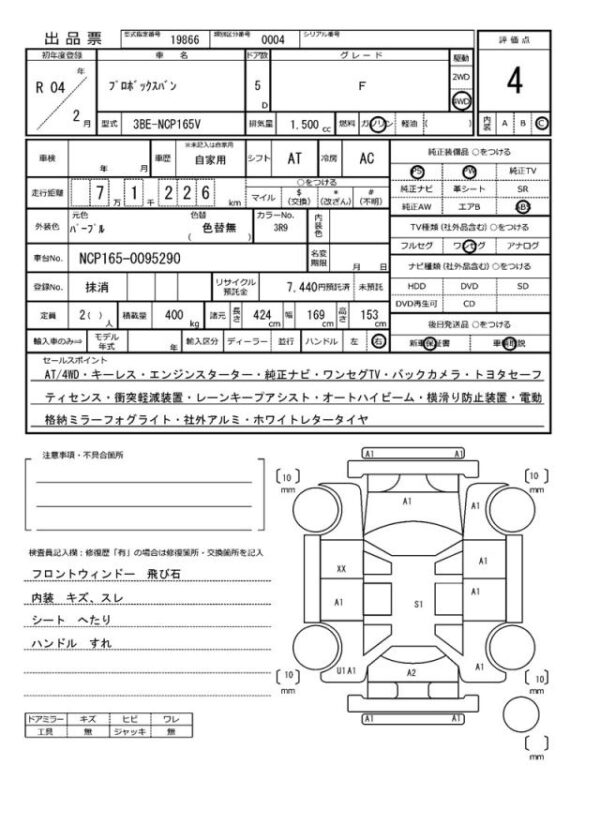 出品票 型式指定番号 19866 類別区分番号 0004 シリアル番号
評価点
初年度登録 車名 ドア数 グレード 駆動
R 04 年 プロボックスバン 5 D F 2WD 4WD 4
2 月 型式 3BE-NCP165V 排気量 1,500 cc 燃料 ガソリン 軽油 ( ) 内装 A B C
車検 年 月 車歴 ※未記入は自家用 自家用 シフト AT 冷房 AC 純正装備品 ○をつける
PS PW 純正TV
走行距離 7 万 1 千 2 2 6 km ○をつける マイル $ (交換) * (改ざん) # (不明) 純正ナビ 革シート SR
純正AW エアB ABS
外装色 元色 パープル 色替 ( 色替無 ) カラーNo. 3R9 内装色 TV種類 (社外品含む) ○をつける
フルセグ ワンセグ アナログ
車台No. NCP165-0095290 名変期限 月 日 ナビ種類 (社外品含む) ○をつける
登録No. 抹消 リサイクル預託金 7,440円預託済 未預託 HDD DVD SD
DVD再生可 CD
定員 2 ( ) 人 積載量 400 kg 諸元 長さ 424 cm 幅 169 cm 高さ 153 cm 後日発送品 ○をつける
輸入車のみ⇒ モデル年式 年 輸入区分 ディーラー 並行 ハンドル 左 右 新車保証書 車輌取説
セールスポイント
AT/4WD・キーレス・エンジンスターター・純正ナビ・ワンセグTV・バックカメラ・トヨタセーフ
ティセンス・衝突軽減装置・レーンキープアシスト・オートハイビーム・横滑り防止装置・電動
格納ミラーフォグライト・社外アルミ・ホワイトレタータイヤ
注意事項・不具合箇所
検査員記入欄:修復歴「有」の場合は修復箇所・交換箇所を記入
フロントウィンドー 飛び石
内装 キズ、スレ
シート へたり
ハンドル すれ
ドアミラー キズ ヒビ ワレ
工具 無 ジャッキ 無
A1 A1
[10] mm A1 [10] mm
A1 A1
XX A1
A1 S1 A1
U1 A1 A2 A1
[10] mm [10] mm
A1 A1
[ ] mm